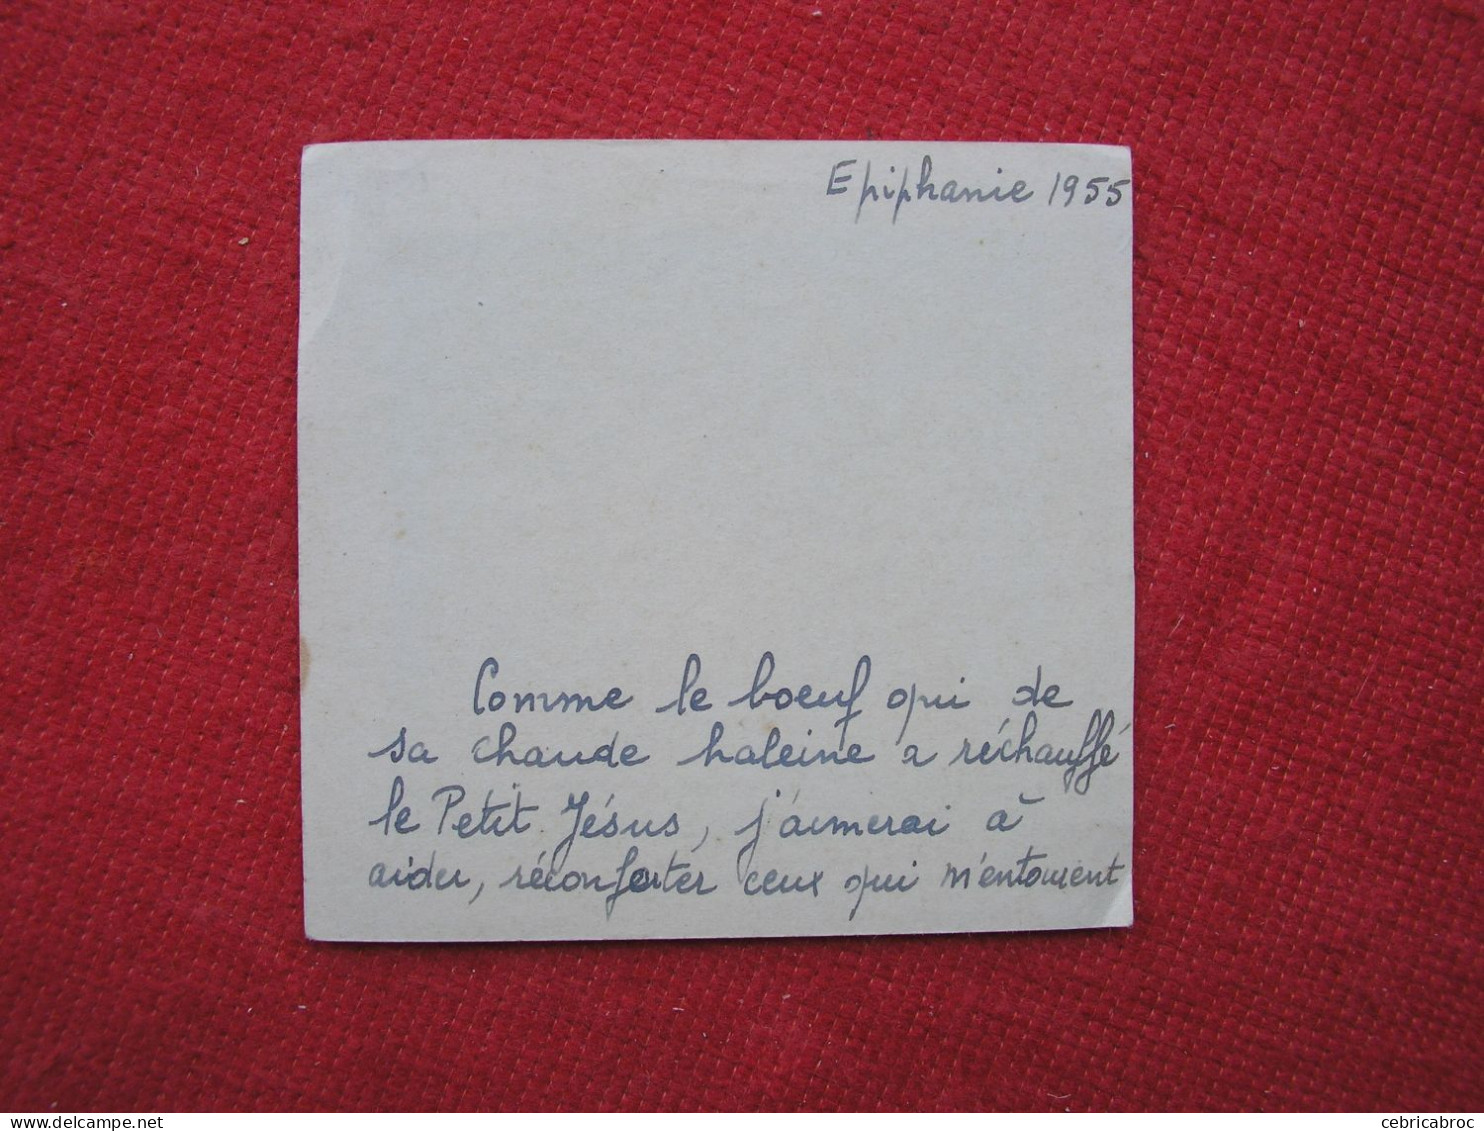 Epiphanie 1955
Comme le boeuf qui de
sa chaude haleine a réchauffé
le Petit Jésus, j'aimerai à
aider, réconforter ceux qui m'entourent
delcampe.net
cebricabroc